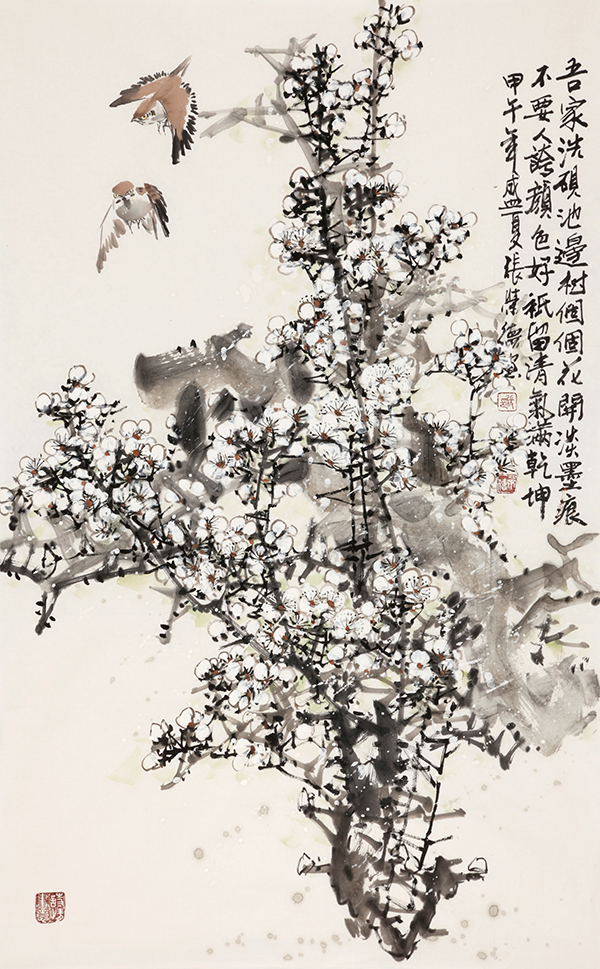 吾家洗硯池邊树個個花開淡墨痕
不要人誇顔色好祇留清氣滿乾坤
甲午年盛夏張德畫